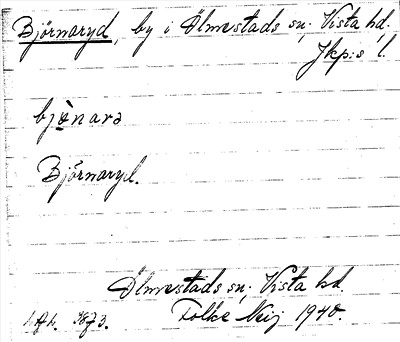 Björnaryd, by i Ölmestads sn; Vista hd.
Jkp:s l.
bjònarə
Björnaryd.
Ölmestads sn; Vista hd.
Folke Neij 1948.